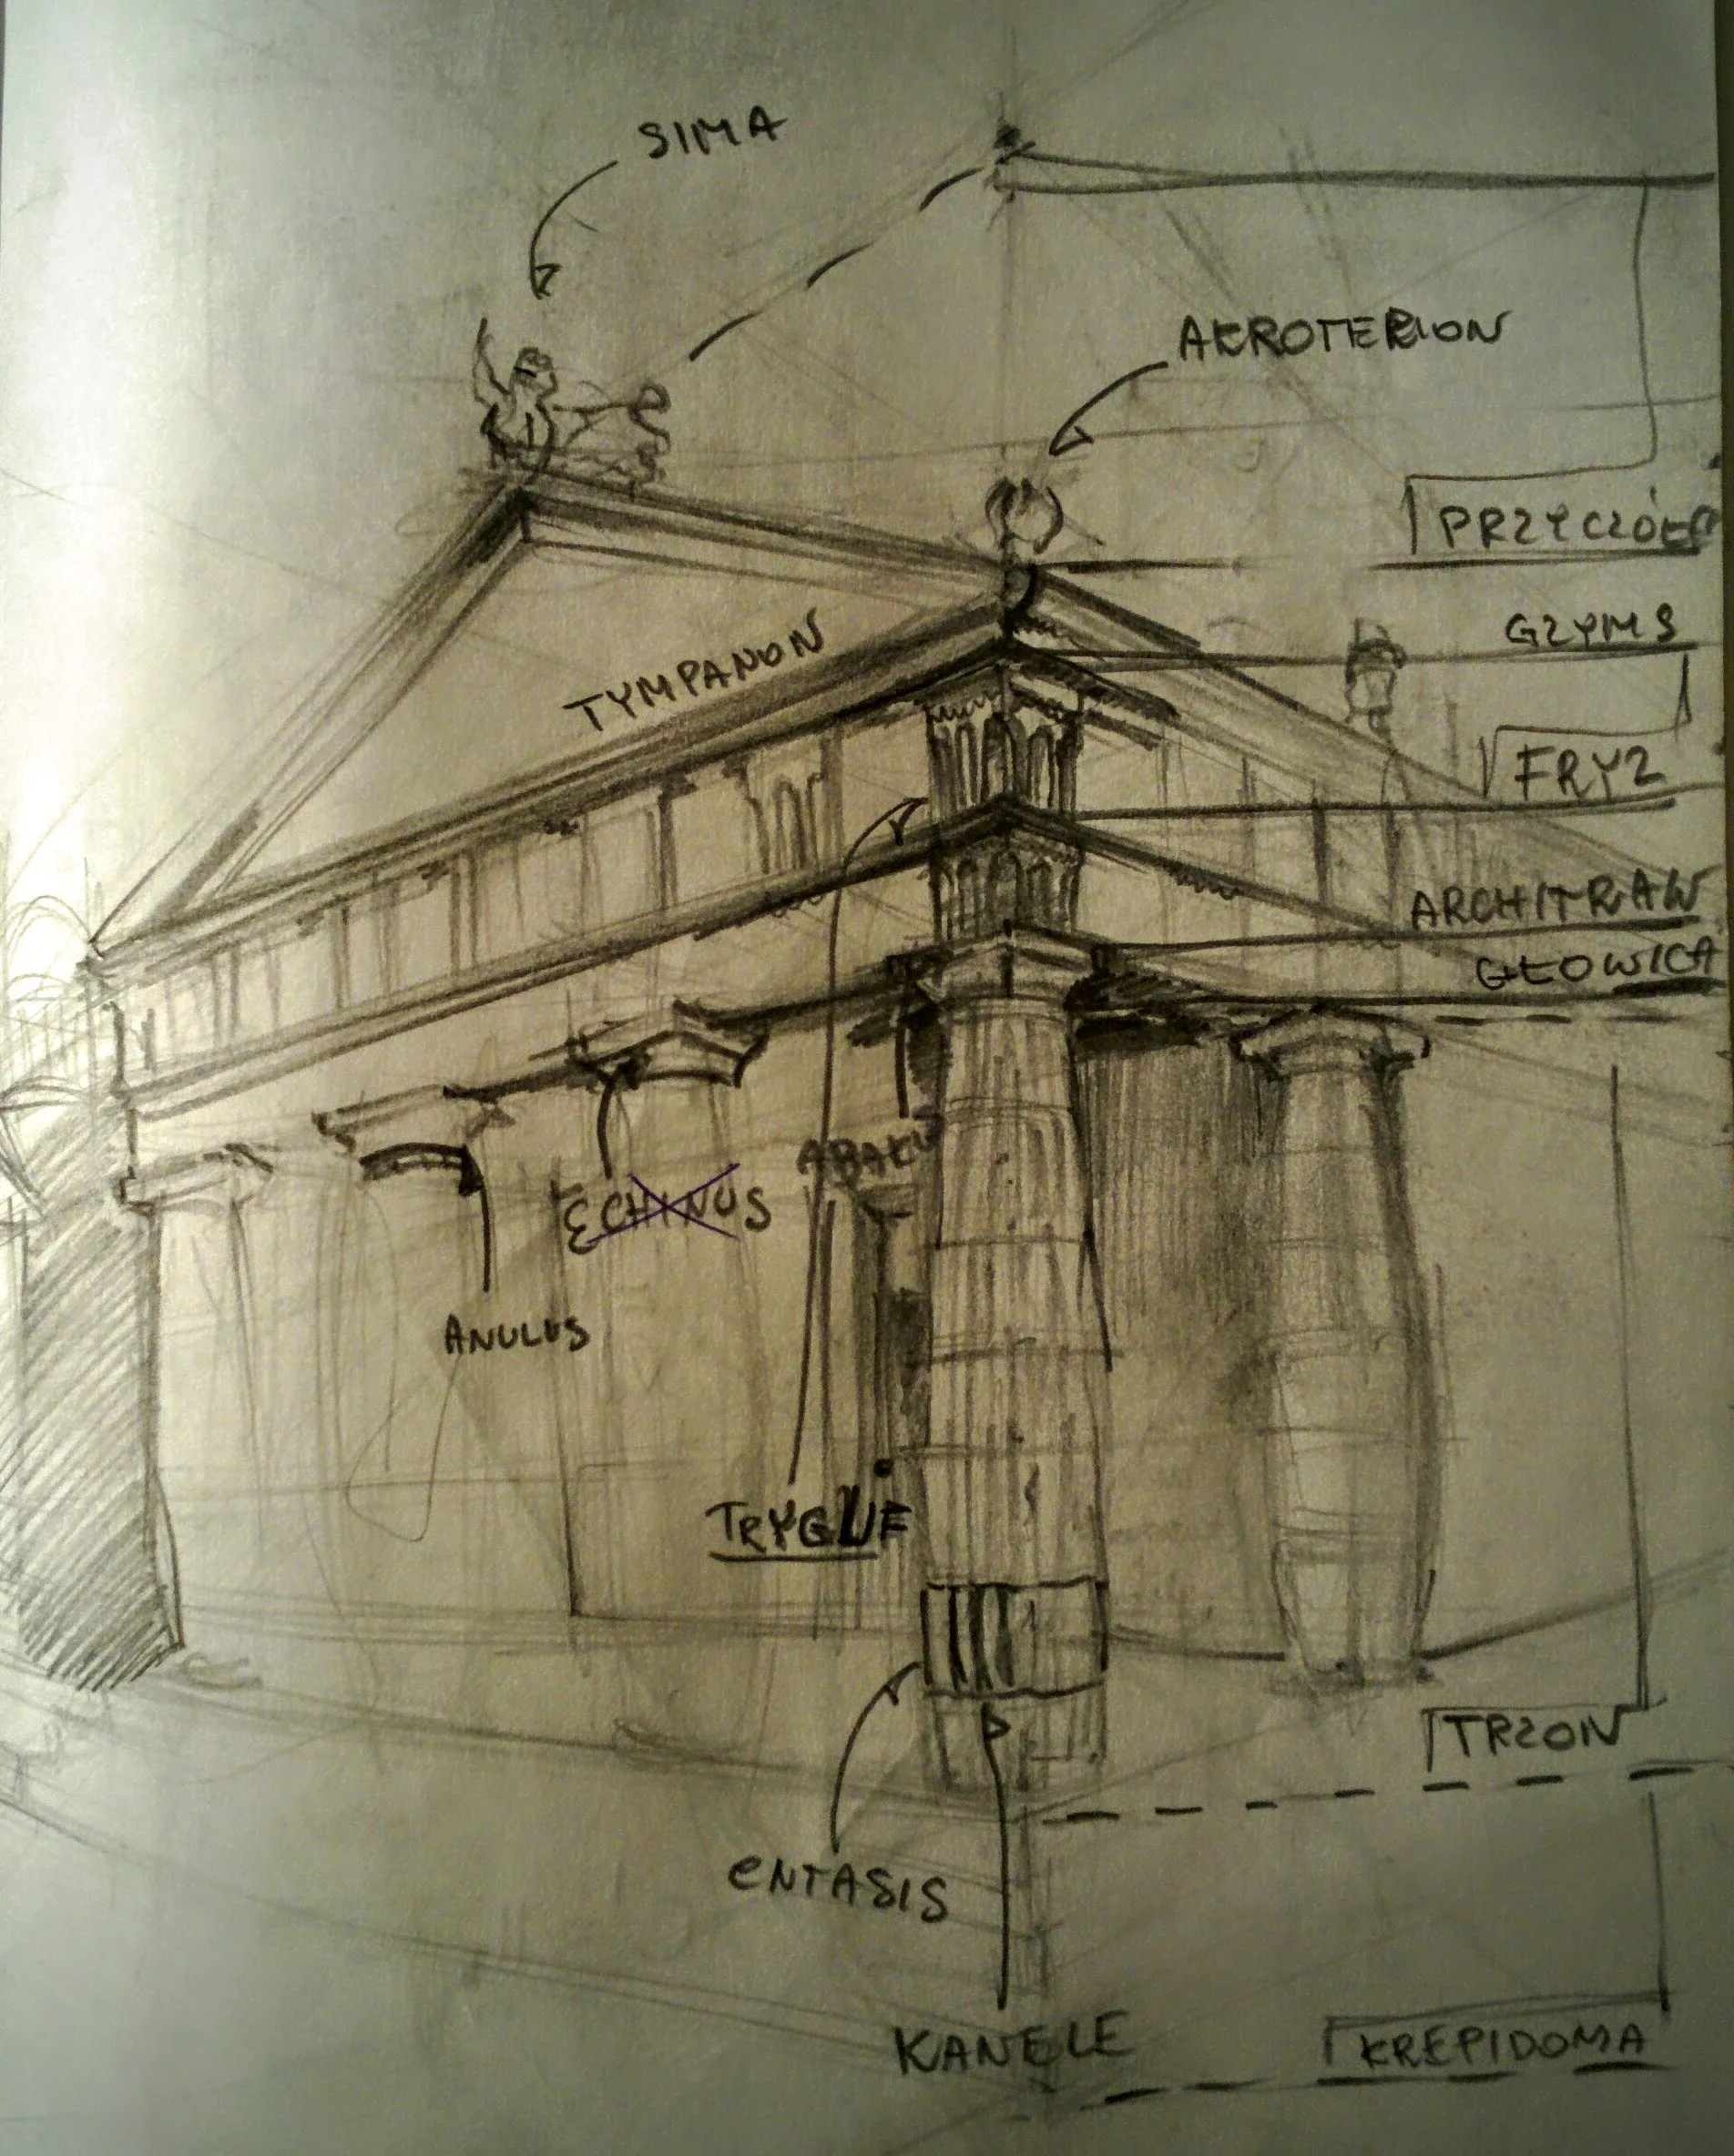 SIMA
AKROTERION
PRZYCZÓŁEK
GZYMS
TYMPANON
FRYZ
ARCHITRAW
GŁOWICA
ABAKU
ECHINUS
ANULUS
TRYGLIF
TRZON
ENTASIS
KANELE
KREPIDOMA